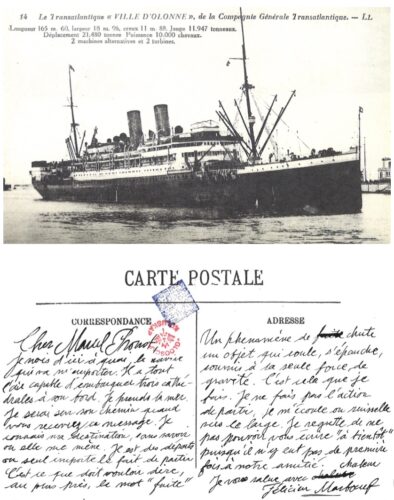 14 Le Transatlantique « VILLE D'OLONNE », de la Compagnie Générale Transatlantique. — LL
Longueur 165 m. 60, largeur 18 m. 96, creux 11 m. 88, Jauge 11.947 tonneaux.
Déplacement 21.480 tonnes Puissance 10.000 chevaux.
2 machines alternatives et 2 turbines.
CARTE POSTALE
CORRESPONDANCE
Cher Marcel Proust
Je vois d'ici à quai le navire
qui va m'emporter. Il a tout
l'air capable d'embarquer trois cathé-
drales à son bord. Je prends la mer.
Je serai sur son chemin quand
vous recevrez ce message. Je
connais ma destination, sans savoir
où elle me mène. Je est du départ
où seul importe le fait de partir.
C'est ce que doit vouloir dire,
au plus près, le mot "fuite"
ADRESSE
Un phénomène de chute
un objet qui coule, s'épanche,
soumis à la seule force de
gravité. C'est cela que je
fuis. Je ne fais pas l'action
de partir, je m'écoute en ruisselle
vers le large. Je regrette de ne
pas pouvoir vous écrire "à bientôt"
puisqu'il n'y eut pas de première
fois à notre amitié.
Je vous salue avec chaleur
Félicien Marboeuf